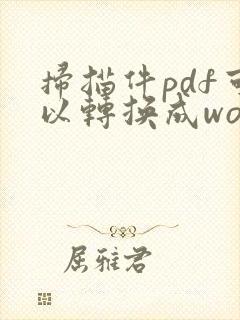 掃描件pdf可
以轉換成wo
屈雅君